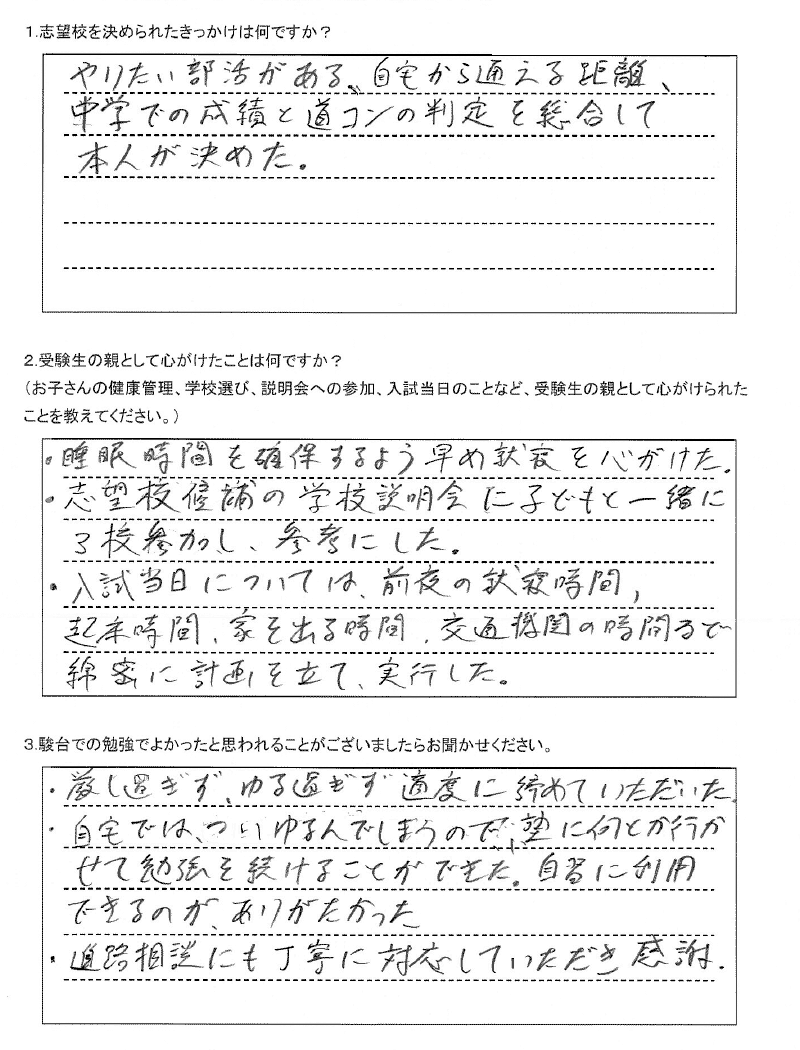 1.志望校を決められたきっかけは何ですか？
やりたい部活がある、自宅から通える距離、
中学での成績と道コンの判定を総合して
本人が決めた。
2.受験生の親として心がけたことは何ですか？
（お子さんの健康管理、学校選び、説明会への参加、入試当日のことなど、受験生の親として心がけられた
ことを教えてください。）
・睡眠時間を確保するよう早め就寝を心がけた。
・志望校候補の学校説明会に子どもと一緒に
3校参加し、参考にした。
・入試当日については、前夜の就寝時間,
起床時間、家を出る時間、交通機関の時間まで
綿密に計画を立て、実行した。
3.駿台での勉強でよかったと思われることがございましたらお聞かせください。
・厳し過ぎず、ゆる過ぎず適度に締めていただいた。
・自宅では、ついゆるんでしまうので、塾に何とか行か
せて勉強を続けることができた。自習に利用
できるのが、ありがたかった
・進路相談にも丁寧に対応していただき感謝.